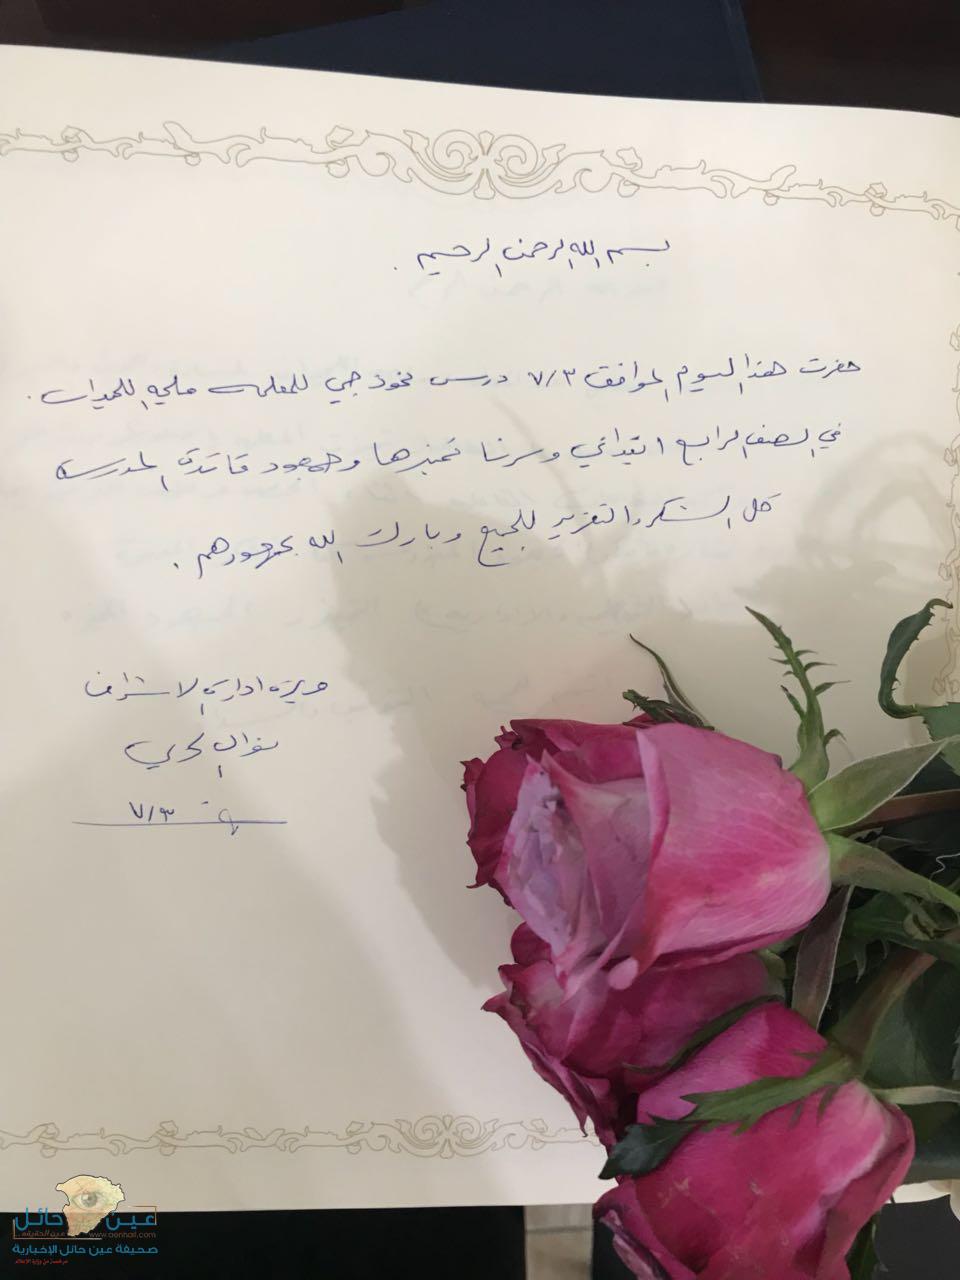 بسم الله الرحمن الرحيم .
حضرت هذا اليوم الموافق ٧/٣ درس نموذجي للمعلمه مليحه اللحيدان .
في الصف الرابع ابتدائي وسرنا تميزها وجهود قائدة المدرسه
كل الشكر والتقدير للجميع وبارك الله بجهودهم .
مديرة ادارة الاشراف
نوال الحربي
٧/٣
عين حائل
www.aenhail.com
صحيفة عين حائل الإخبارية